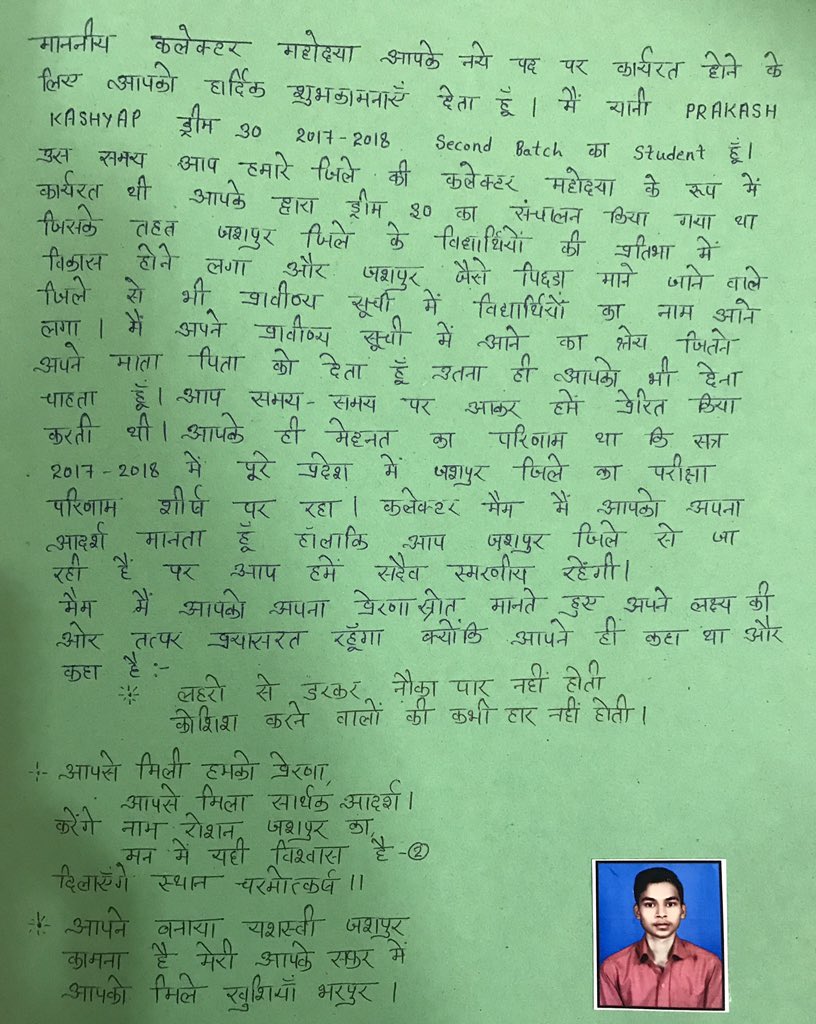 माननीय कलेक्टर महोदया आपके नये पद पर कार्यरत होने के
लिए आपको हार्दिक शुभकामनाएँ देता हूँ । मैं यानी PRAKASH
KASHYAP ड्रीम 30 2017-2018 Second Batch का Student हूँ।
उस समय आप हमारे जिले की कलेक्टर महोदया के रूप में
कार्यरत थी आपके द्वारा ड्रीम 30 का संचालन किया गया था
जिसके तहत जशपुर जिले के विद्यार्थियों की प्रतिभा में
विकास होने लगा और जशपुर जैसे पिछड़ा माने जाने वाले
जिले से भी प्रावीण्य सूची में विद्यार्थियों का नाम आने
लगा । मैं अपने प्रावीण्य सूची में आने का श्रेय जितने
अपने माता पिता को देता हूँ उतना ही आपको भी देना
चाहता हूँ। आप समय-समय पर आकर हमें प्रेरित किया
करती थी । आपके ही मेहनत का परिणाम था कि सत्र
2017-2018 में पूरे प्रदेश में जशपुर जिले का परीक्षा
परिणाम शीर्ष पर रहा । कलेक्टर मैम मैं आपको अपना
आदर्श मानता हूँ हॉलाकि आप जशपुर जिले से जा
रही हैं पर आप हमें सदैव स्मरणीय रहेंगी।
मैम मैं आपको अपना प्रेरणा स्रोत मानते हुए अपने लक्ष्य की
ओर तत्पर प्रयासरत रहूँगा क्योंकि आपने ही कहा था और
कहा है :-
लहरो से डरकर नौका पार नहीं होती
कोशिश करने वालों की कभी हार नहीं होती।
आपसे मिली हमको प्रेरणा,
आपसे मिला सार्थक आदर्श।
करेंगे नाम रोशन जशपुर का,
मन में यही विश्वास है -②
दिलाएँगे स्थान चरमोत्कर्ष ।।
आपने बनाया यशस्वी जशपुर
कामना है मेरी आपके सफर में
आपको मिले खुशियाँ भरपुर ।